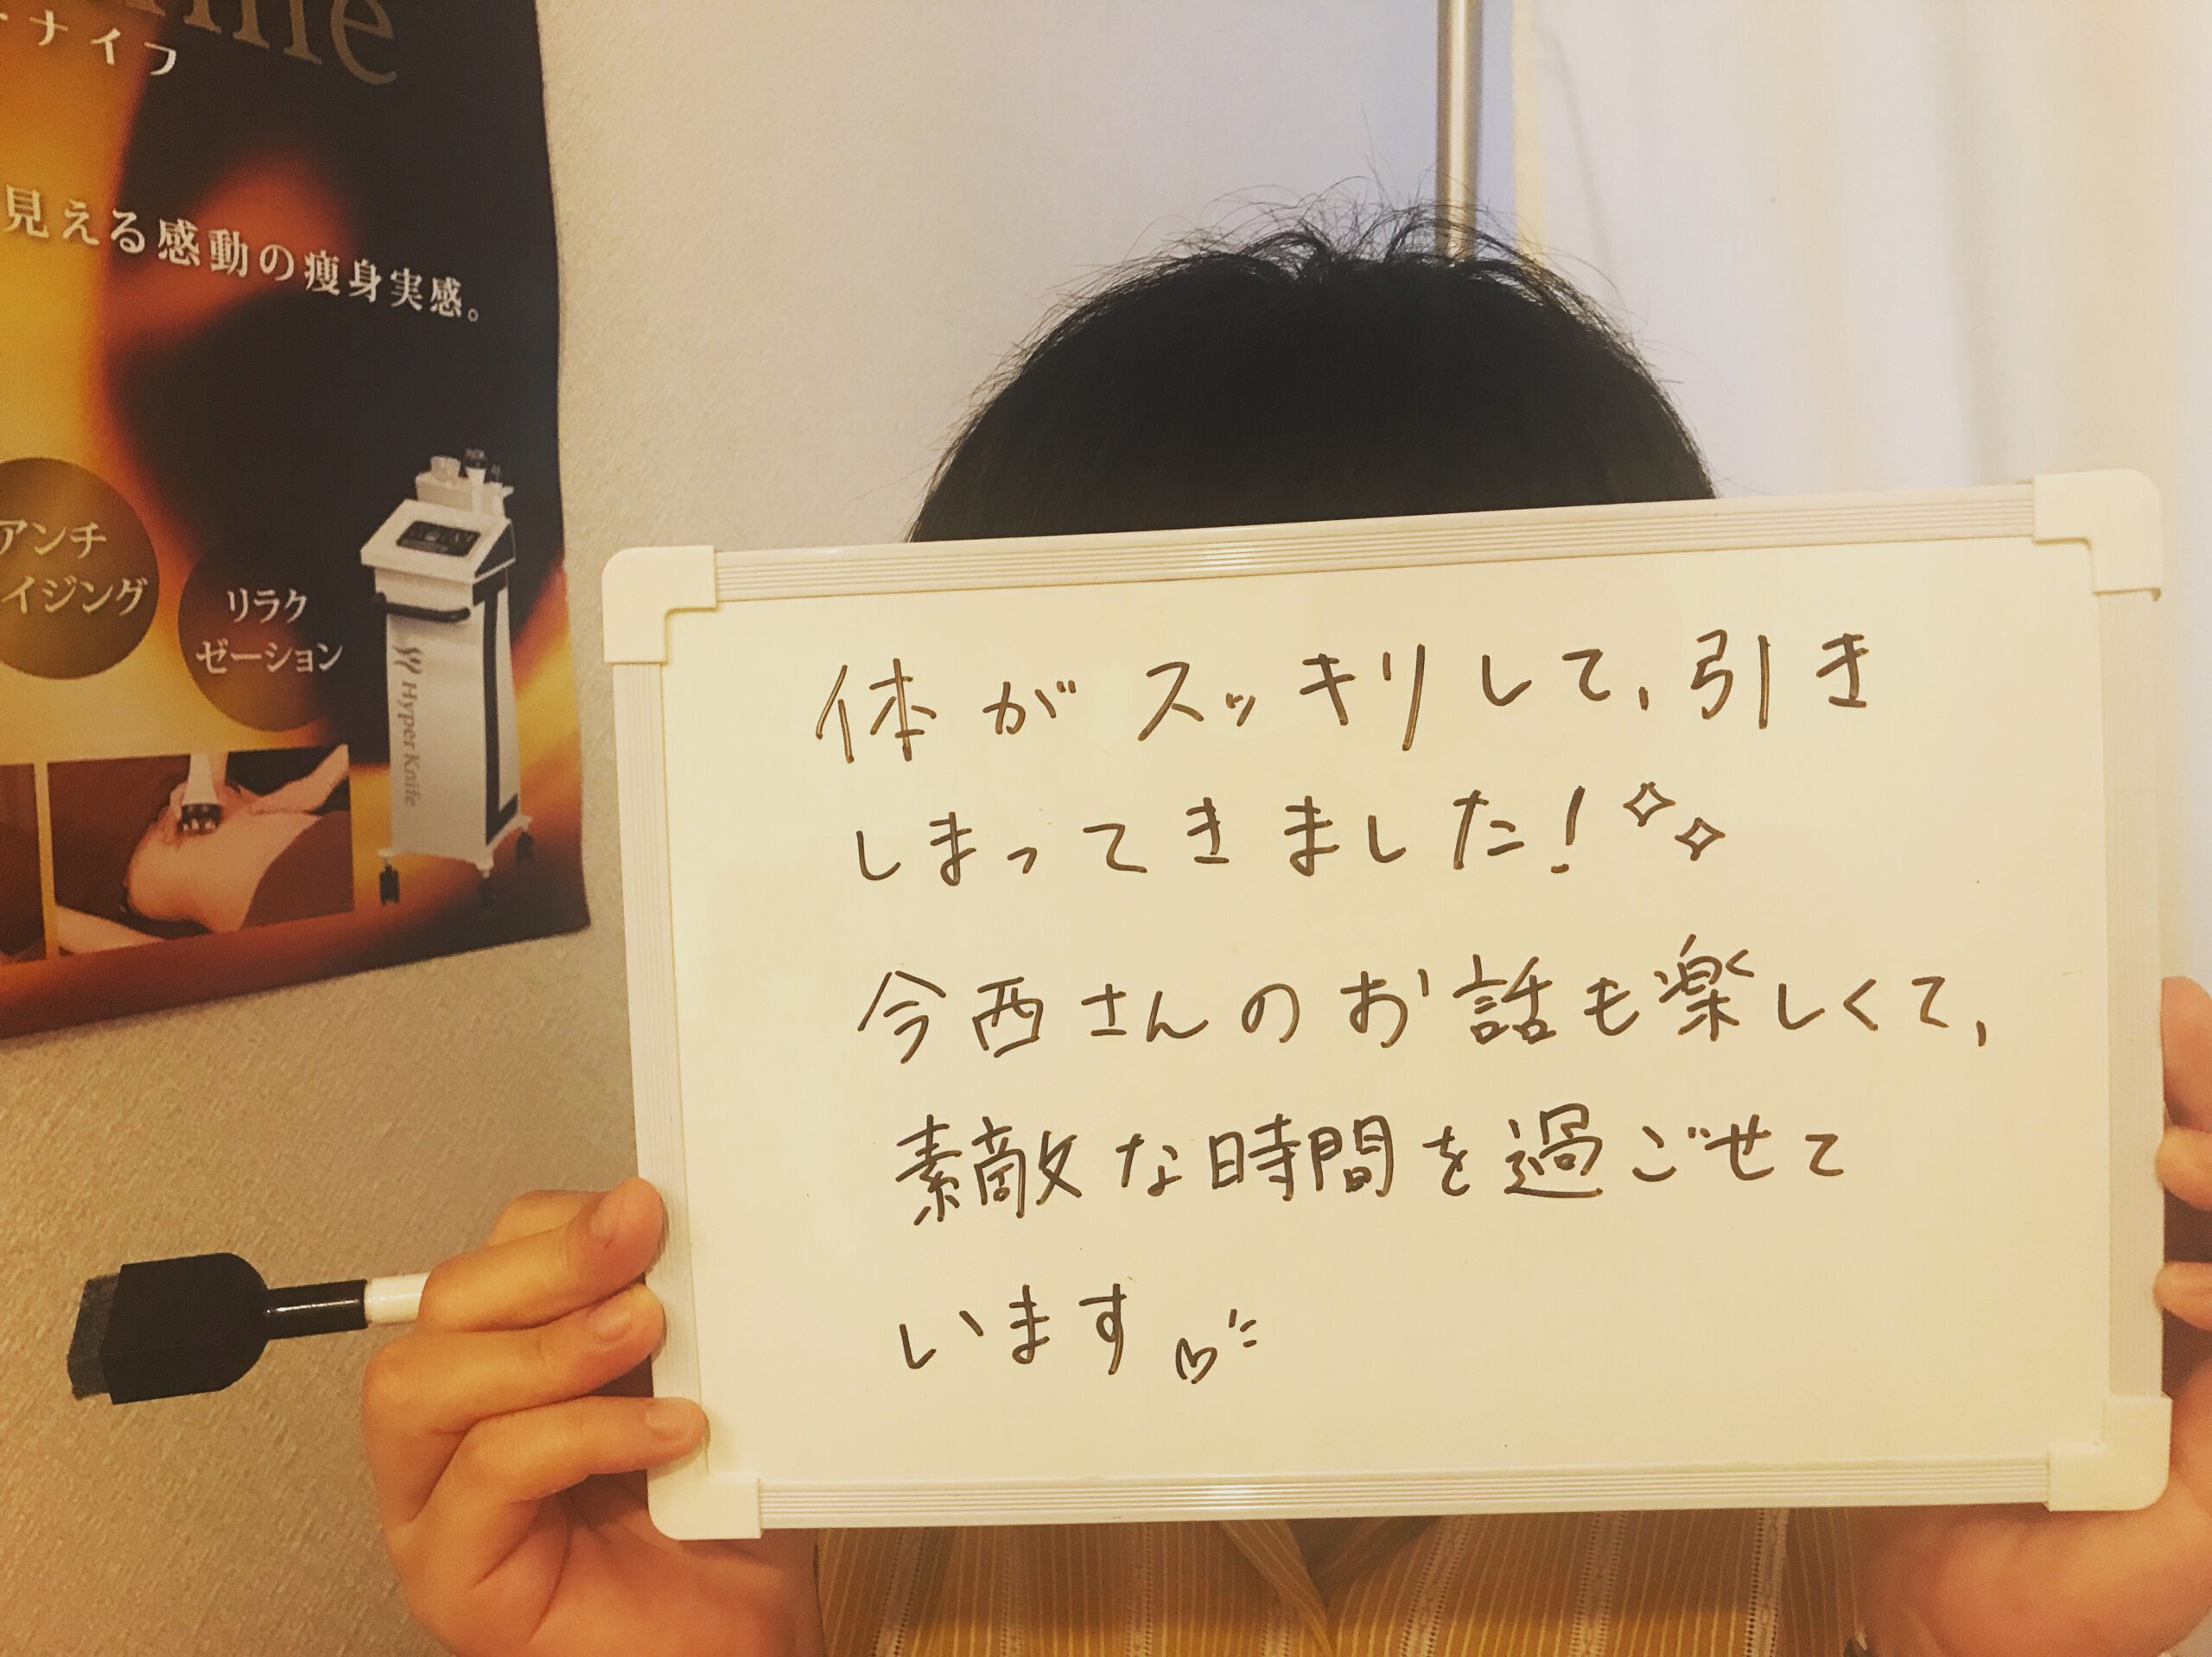 ナイフ
見える感動の瘦身実感。
アンチ
イジング
リラク
ゼーション
Hyper Knife
体がスッキリして、引き
しまってきました!
今西さんのお話も楽しくて、
素敵な時間を過ごせて
います